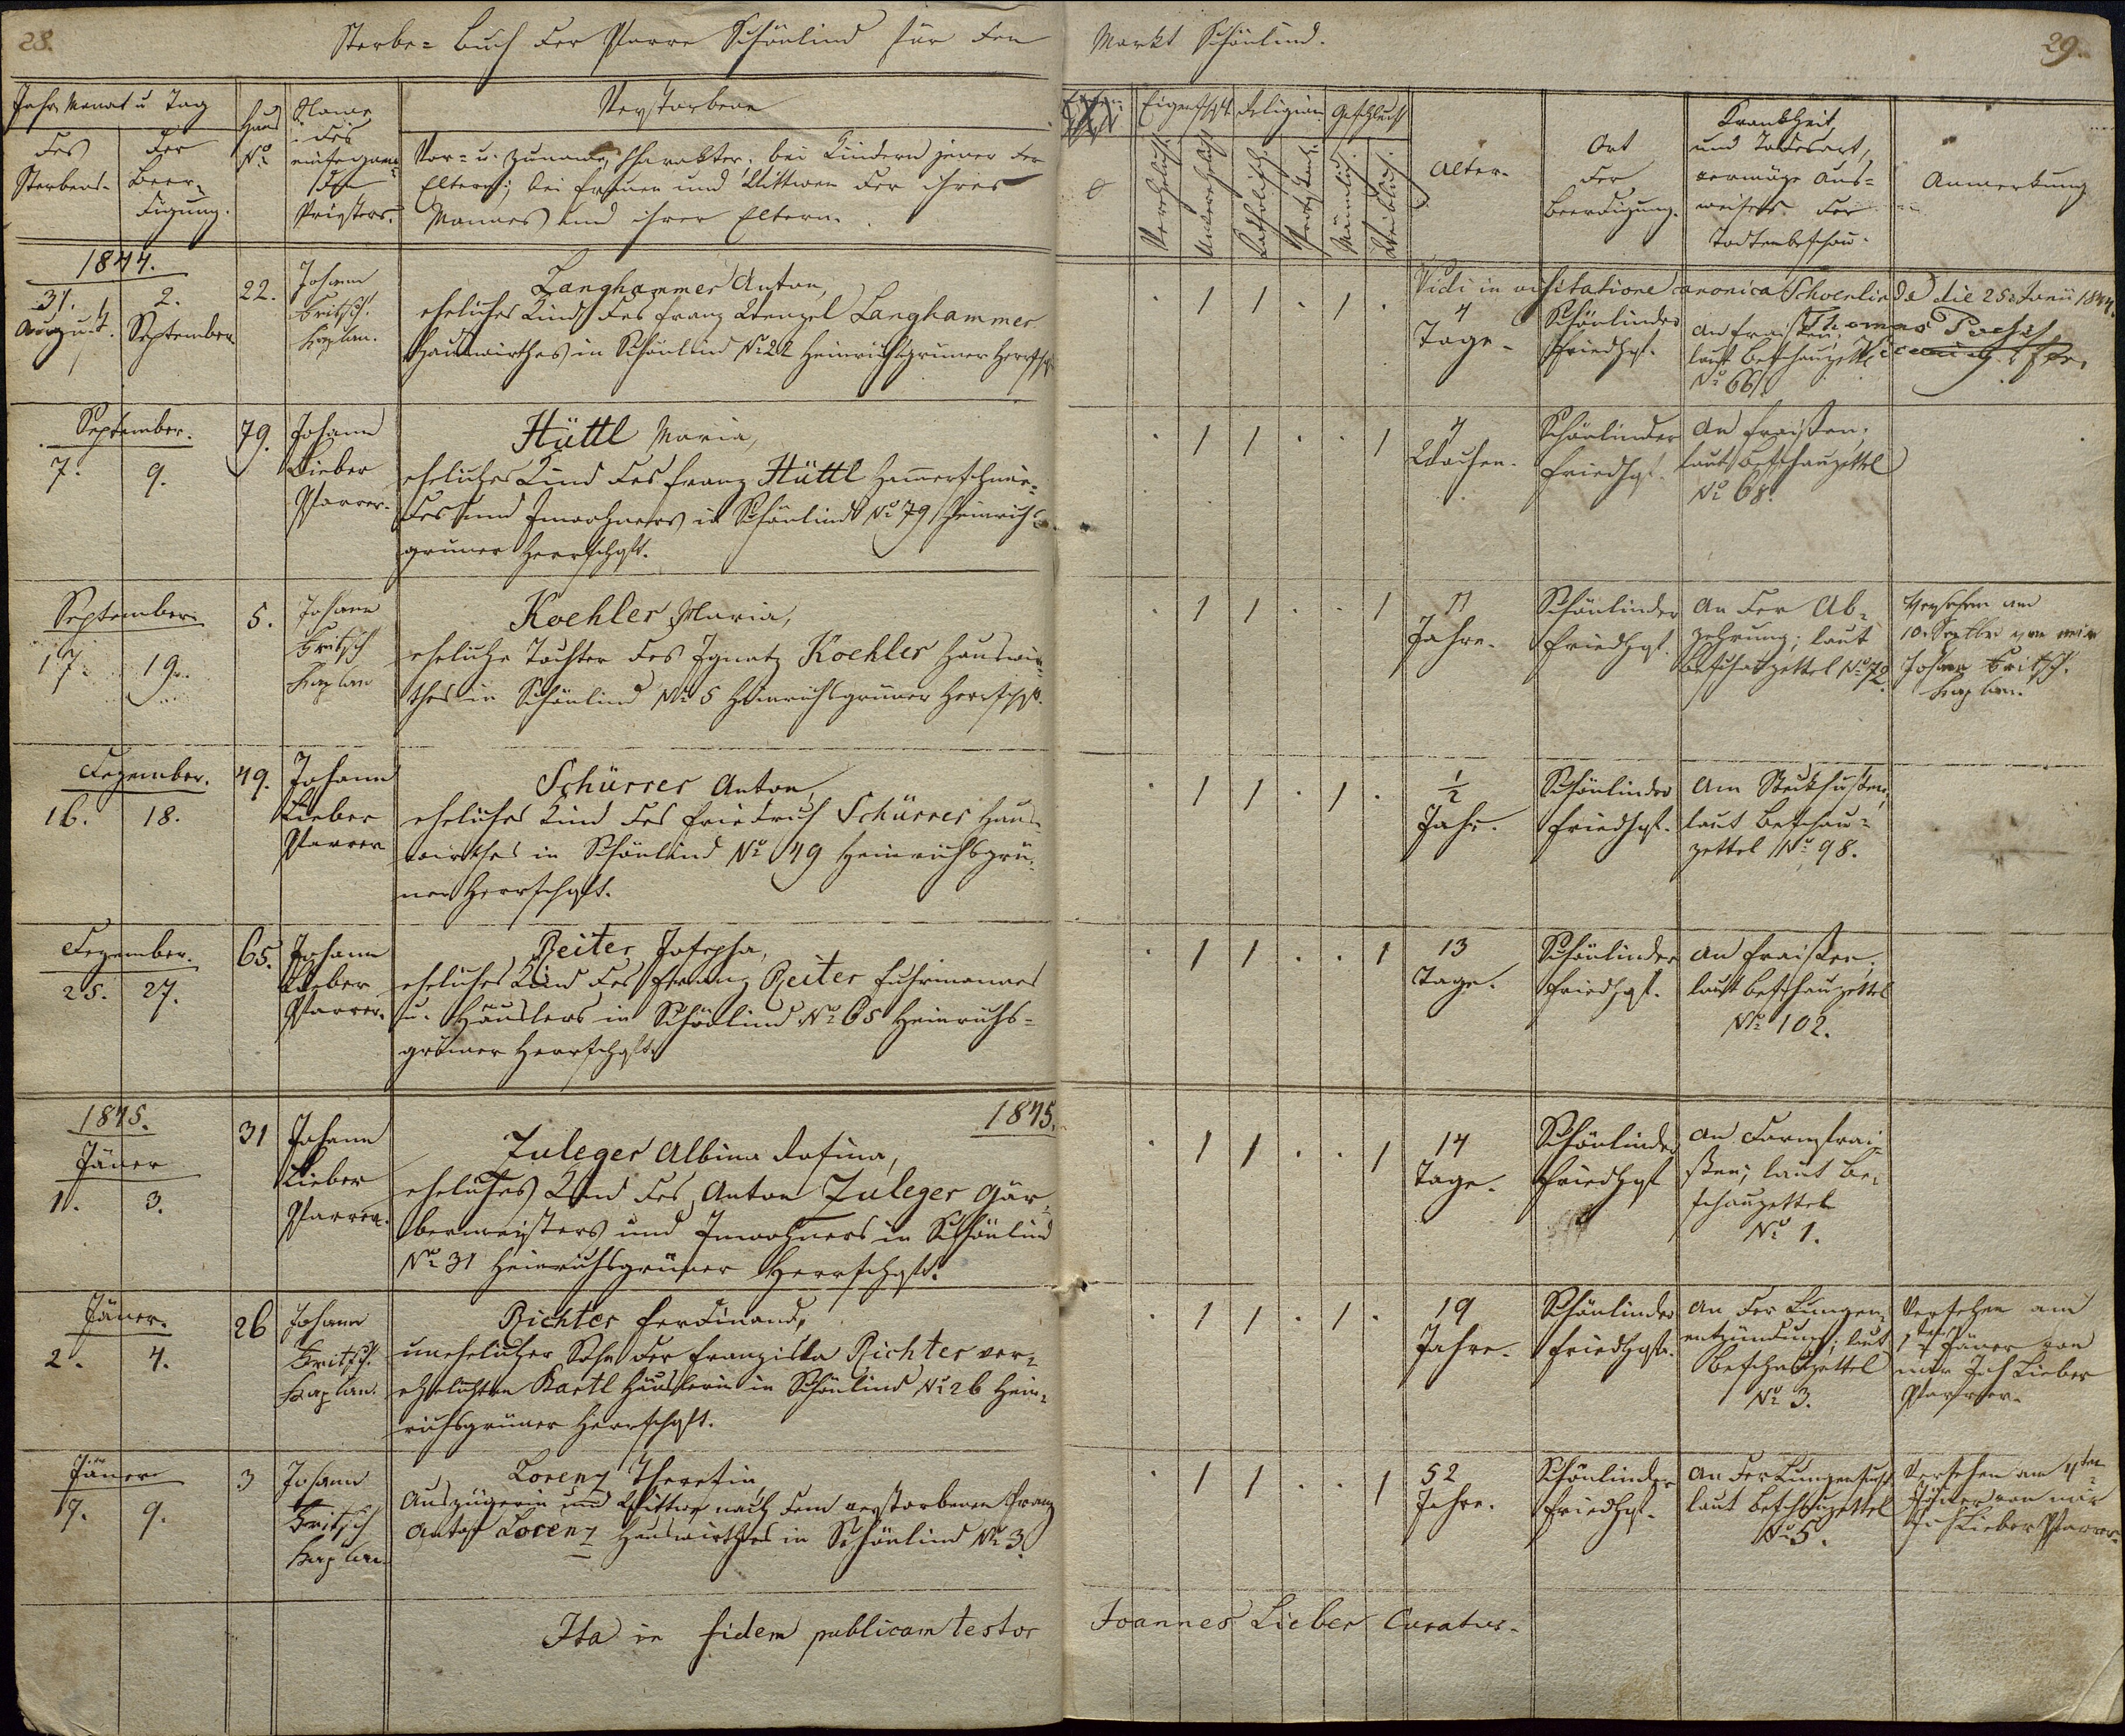 28.
Sterbe= Buch der Pfarre Schönlind für den
Markt Schönlind.
29.
Jahr, Monat u Tag
des Sterbens.
der Beer=
digung.
Haus
No
Name
des
einsegnen=
den
Priesters.
Verstorbene
Vor= u. Zuname, Charakter; bei Kindern jener der
Eltern; bei Frauen und Wittwen der ihres
Mannes und ihrer Eltern.
Eigenschft
Religion
Geschlecht
Verehelicht.
Unverehelicht
Katholisch.
Männlich.
Weiblich.
Alter.
Ort
der
Beerdigung.
Krankheit
und Todesart,
vermöge Aus=
weises der
Todtenbeschau.
Anmerkung
Vidi in visitatione canonica Schoenlinde die 25. Junii 1844.
Thomas
1844.
31.
August.
2.
September
22.
Johann
Fritsch.
Kaplan.
Langhammer Anton,
eheliches Kind des Franz Wenzel Langhammer
Hauswirthes in Schönlind No 22 Heinrichsgrüner Herrsch
1 1 . 1 .
4
Tage.
Schönlinder
Friedhof.
An Fraisen;
laut Beschauzettel
No 66.
September.
7. 9.
79.
Johann
Lieber
Pfarrer.
Hüttl Maria,
eheliches Kind des Franz Hüttl Hamerschmie=
des und Inwohners in Schönlind No 79 Heinrichs
grüner Herrschaft.
. 1 1 . . 1
7
Wochen.
Schönlinder
Friedhof.
An Fraisen;
laut Beschauzettel
No 68.
September.
17. 19.
5.
Johann
Fritsch
Kaplan
Koehler Maria,
eheliche Tochter des Ignatz Koehler Hauswir=
thes in Schönlind No 5 Heinrichsgrüner Herrschft.
. 1 1 . . 1
11
Jahre.
Schönlinder
Friedhof.
An der Ab=
zehrung; laut
Beschauzettel No 72.
Versehen am
10. Septbr von mir
Johann Fritsch.
Kaplan.
Dezember.
16. 18.
49.
Johann
Lieber
Pfarrer
Schürrer Anton,
eheliches Kind des Friedrich Schürrer Haus=
wirthes in Schönlind No 49 Heinrichsgrü=
ner Herrschaft.
. 1 1 . 1 .
1/2
Jahr.
Schönlinder
Friedhof.
Am Stickhusten;
laut Beschau=
zettel No 98.
Dezember.
25. 27.
65.
Johann
Lieber
Pfarrer.
Reiter Josepha,
eheliches Kind des Franz Reiter Fuhrmannes
u. Häuslers in Schönlind No 65 Heinrichs=
grüner Herrschaft.
. 1 1 . . 1
13
Tage.
Schönlinder
Friedhof.
An Fraisen,
laut Beschauzettel
No 102.
1845.
1845.
Jäner
1. 3.
31
Johann
Lieber
Pfarrer.
Zuleger Albina Rosina,
eheliches Kind des Anton Zuleger Gär=
bermeisters und Inwohners in Schönlind
No 31 Heinrichsgrüner Herrschaft.
. 1 1 . . 1
14
Tage.
Schönlinder
Friedhof
An Darmfrai=
sen; laut Be=
schauzettel
No 1.
Jäner.
2. 4.
26
Johann
Fritsch.
Kaplan.
Richter Ferdinand,
unehelicher Sohn der Franziska Richter ver=
ehelichten Bartl Häuslerin in Schönlind No 26 Hein=
richsgrüner Herrschaft.
. 1 1 . 1 .
19
Jahre.
Schönlinder
Friedhofe.
An der Lungen=
entzündung; laut
Beschauzettel
No 3.
Versehen am
1ten Jäner von
mir Joh Lieber
Pfarrer.
Jäner
7. 9.
3
Johann
Fritsch
Kaplan.
Lorenz Theresia,
Auszügerin und Wittwe nach dem verstorbenen Franz
Anton Lorenz Hauswirthes in Schönlind No 3.
. 1 1 . . 1
52
Jahre.
Schönlinder
Friedhof.
An der Lungensucht
laut Beschauzettel
No 5.
Versehen am 4ten
Jäner von mir
Joh Lieber Pfarrer.
Ita in fidem publicam testor
Joannes Lieber Curatus.